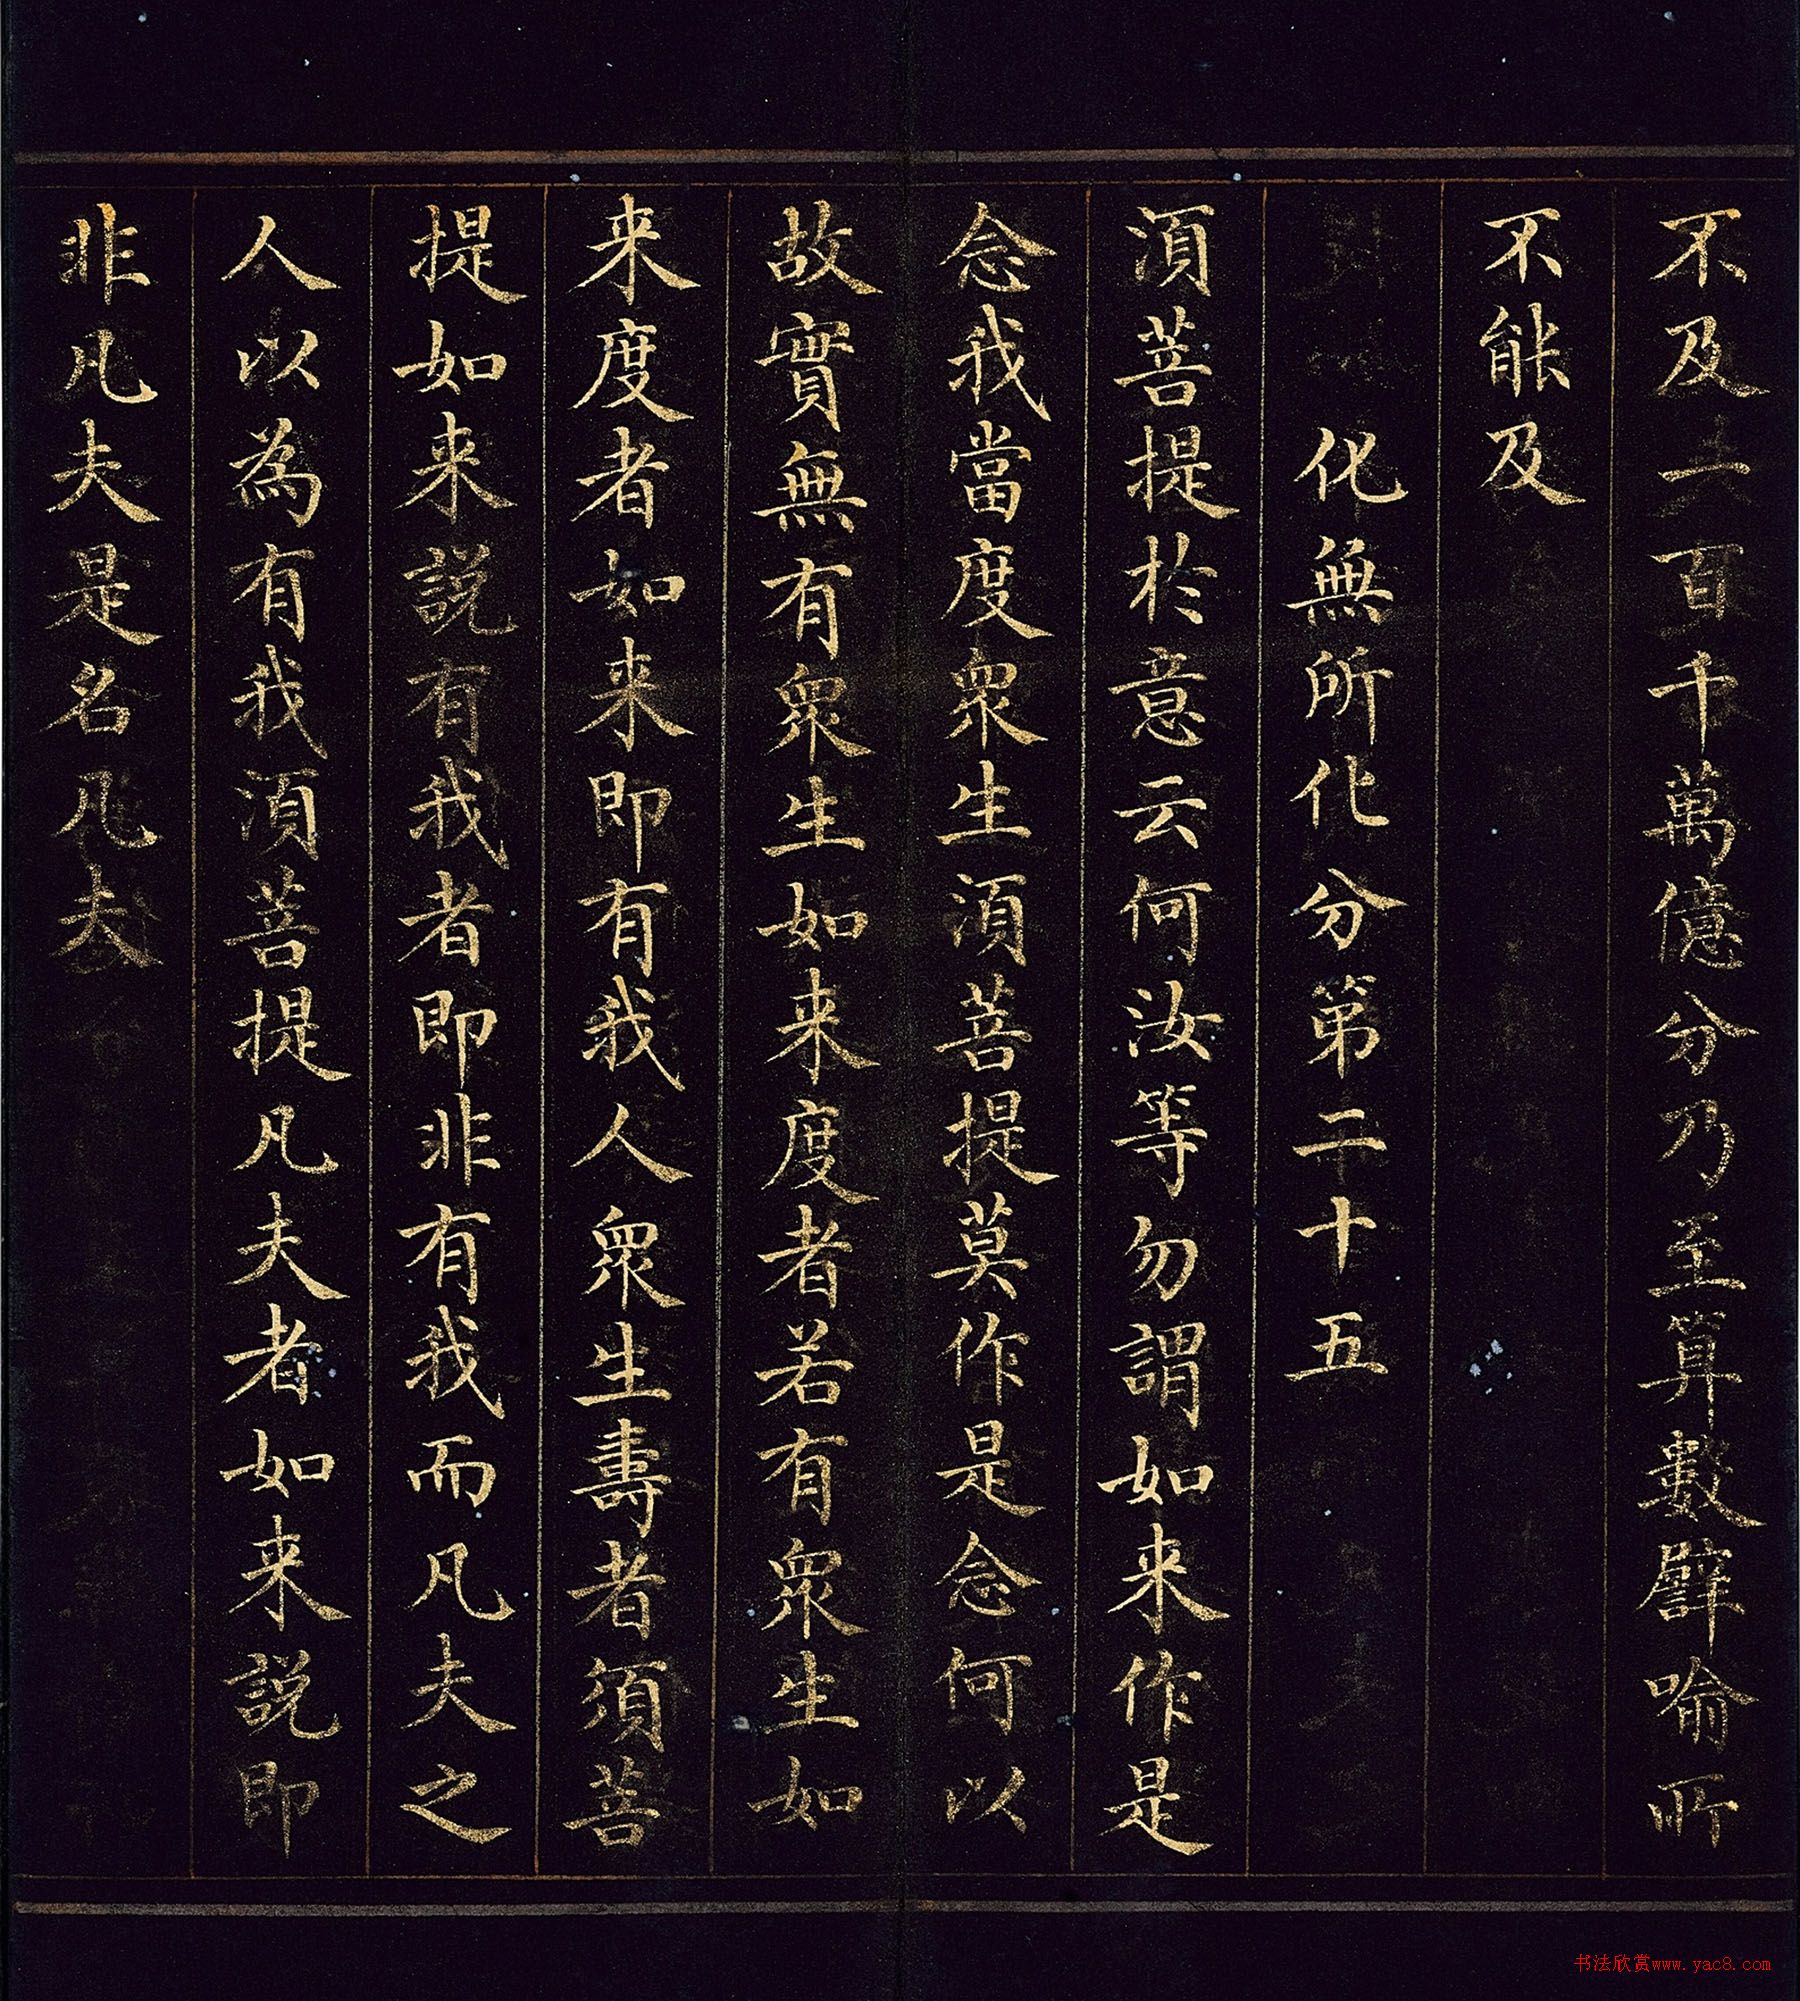 不及一百千萬億分乃至算數譬喻所
不能及
化無所化分第二十五
須菩提於意云何汝等勿謂如来作是
念我當度眾生須菩提莫作是念何以
故實無有眾生如来度者若有眾生如
来度者如来即有我人眾生壽者須菩
提如来說有我者即非有我而凡夫之
人以為有我須菩提凡夫者如来說即
非凡夫是名凡夫
书法欣赏www.yac8.com